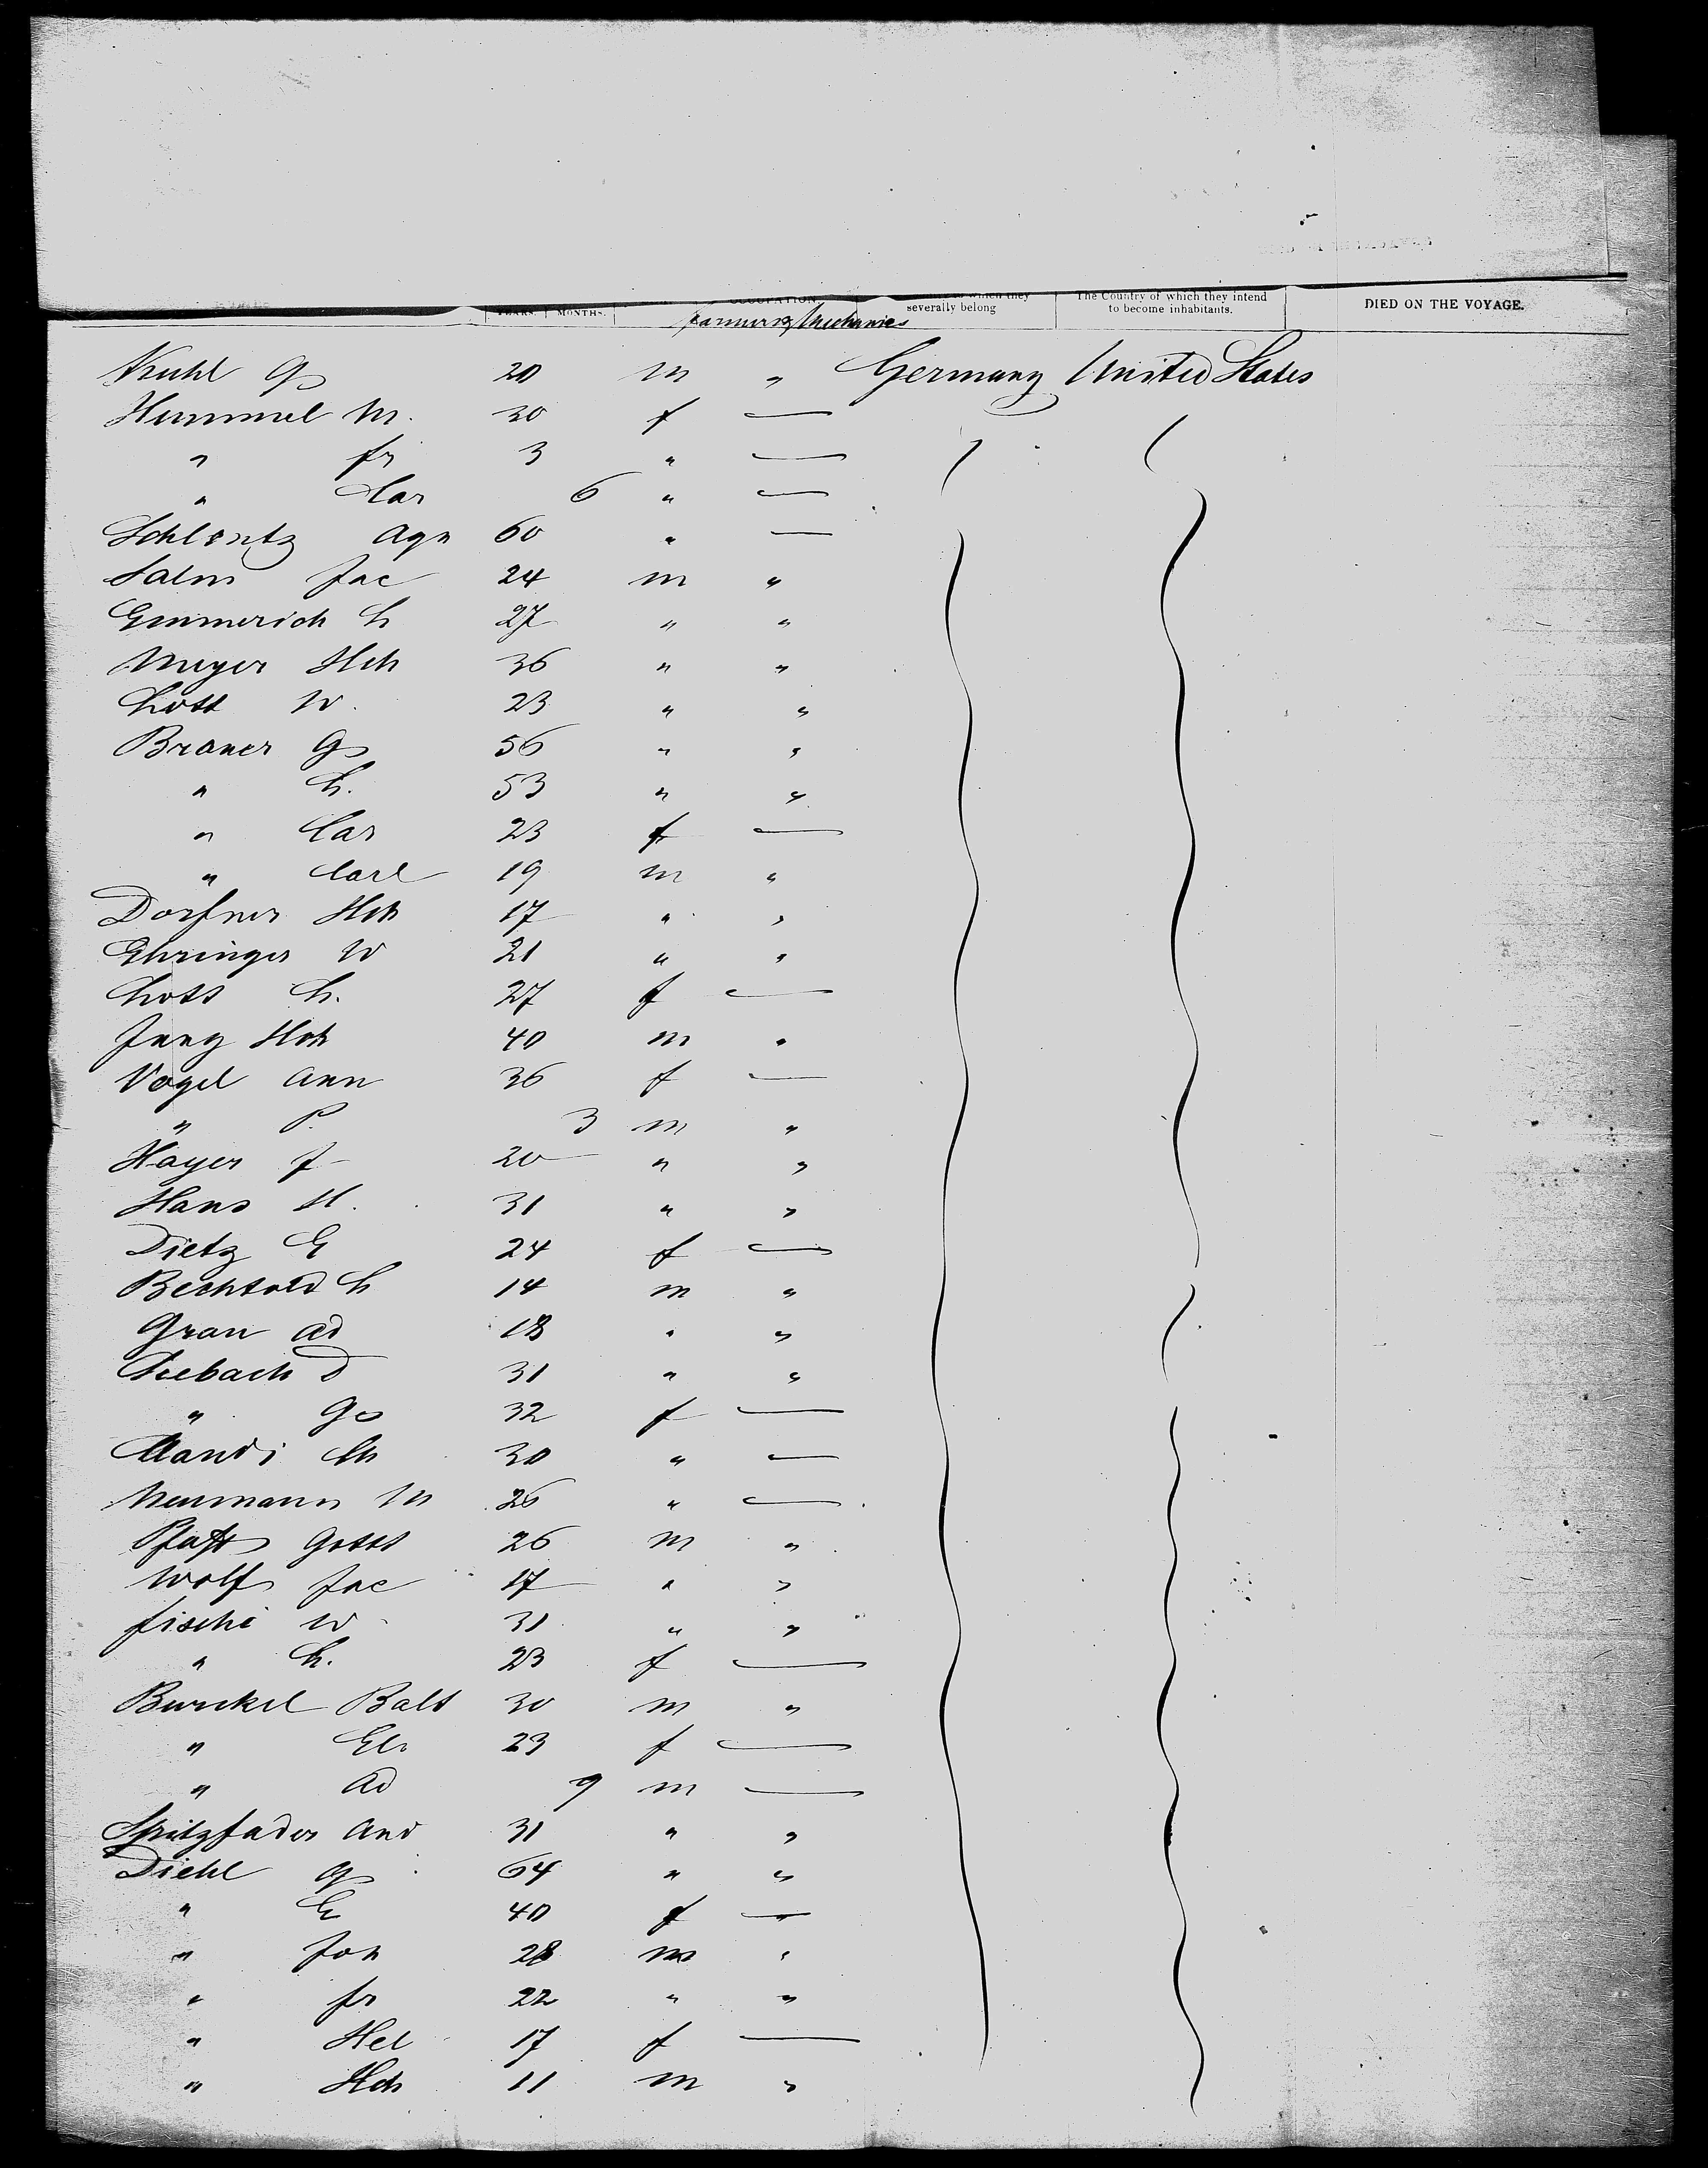 YEARS. MONTHS. OCCUPATION. which they severally belong The Country of which they intend to become inhabitants. DIED ON THE VOYAGE.
Farmers & Mechanics
Kuhl Gg 20 m " Germany United States
Hummel M. 30 f —
" fr 3 " —
" Car 6 " —
Schlontz Agn 60 " —
Salm Jac 24 m "
Emmerich Ch 27 " "
Meyer Hch 36 " "
Lott W. 23 " "
Braner Gg 56 " "
" Ch. 53 " "
" Car 23 f —
" Carl 19 m "
Dorfner Hch 17 " "
Ehringer W 21 " "
Lott Ch. 27 f —
Jung Hch 40 m "
Vogel Ann 36 f —
" P. 3 m "
Hayer J 20 " "
Hans H. 31 " "
Dietz E 24 f —
Bechtold Ch 14 m "
Grau Ad 18 " "
Seebach D 31 " "
" Ge 32 f —
30 " —
Neumann M 26 " —
Pfaff Gott 26 m "
Wolf Jac 17 " "
fische W 31 " "
" Ch. 23 f —
Burckel Balt 30 m "
" Els 23 f —
" Ad 9 m —
Spitzfader And 31 " "
Diehl Gg 64 " "
" E 40 f —
" Joh 28 m "
" fr 22 " "
" Hel 17 f —
" Hch 11 m "